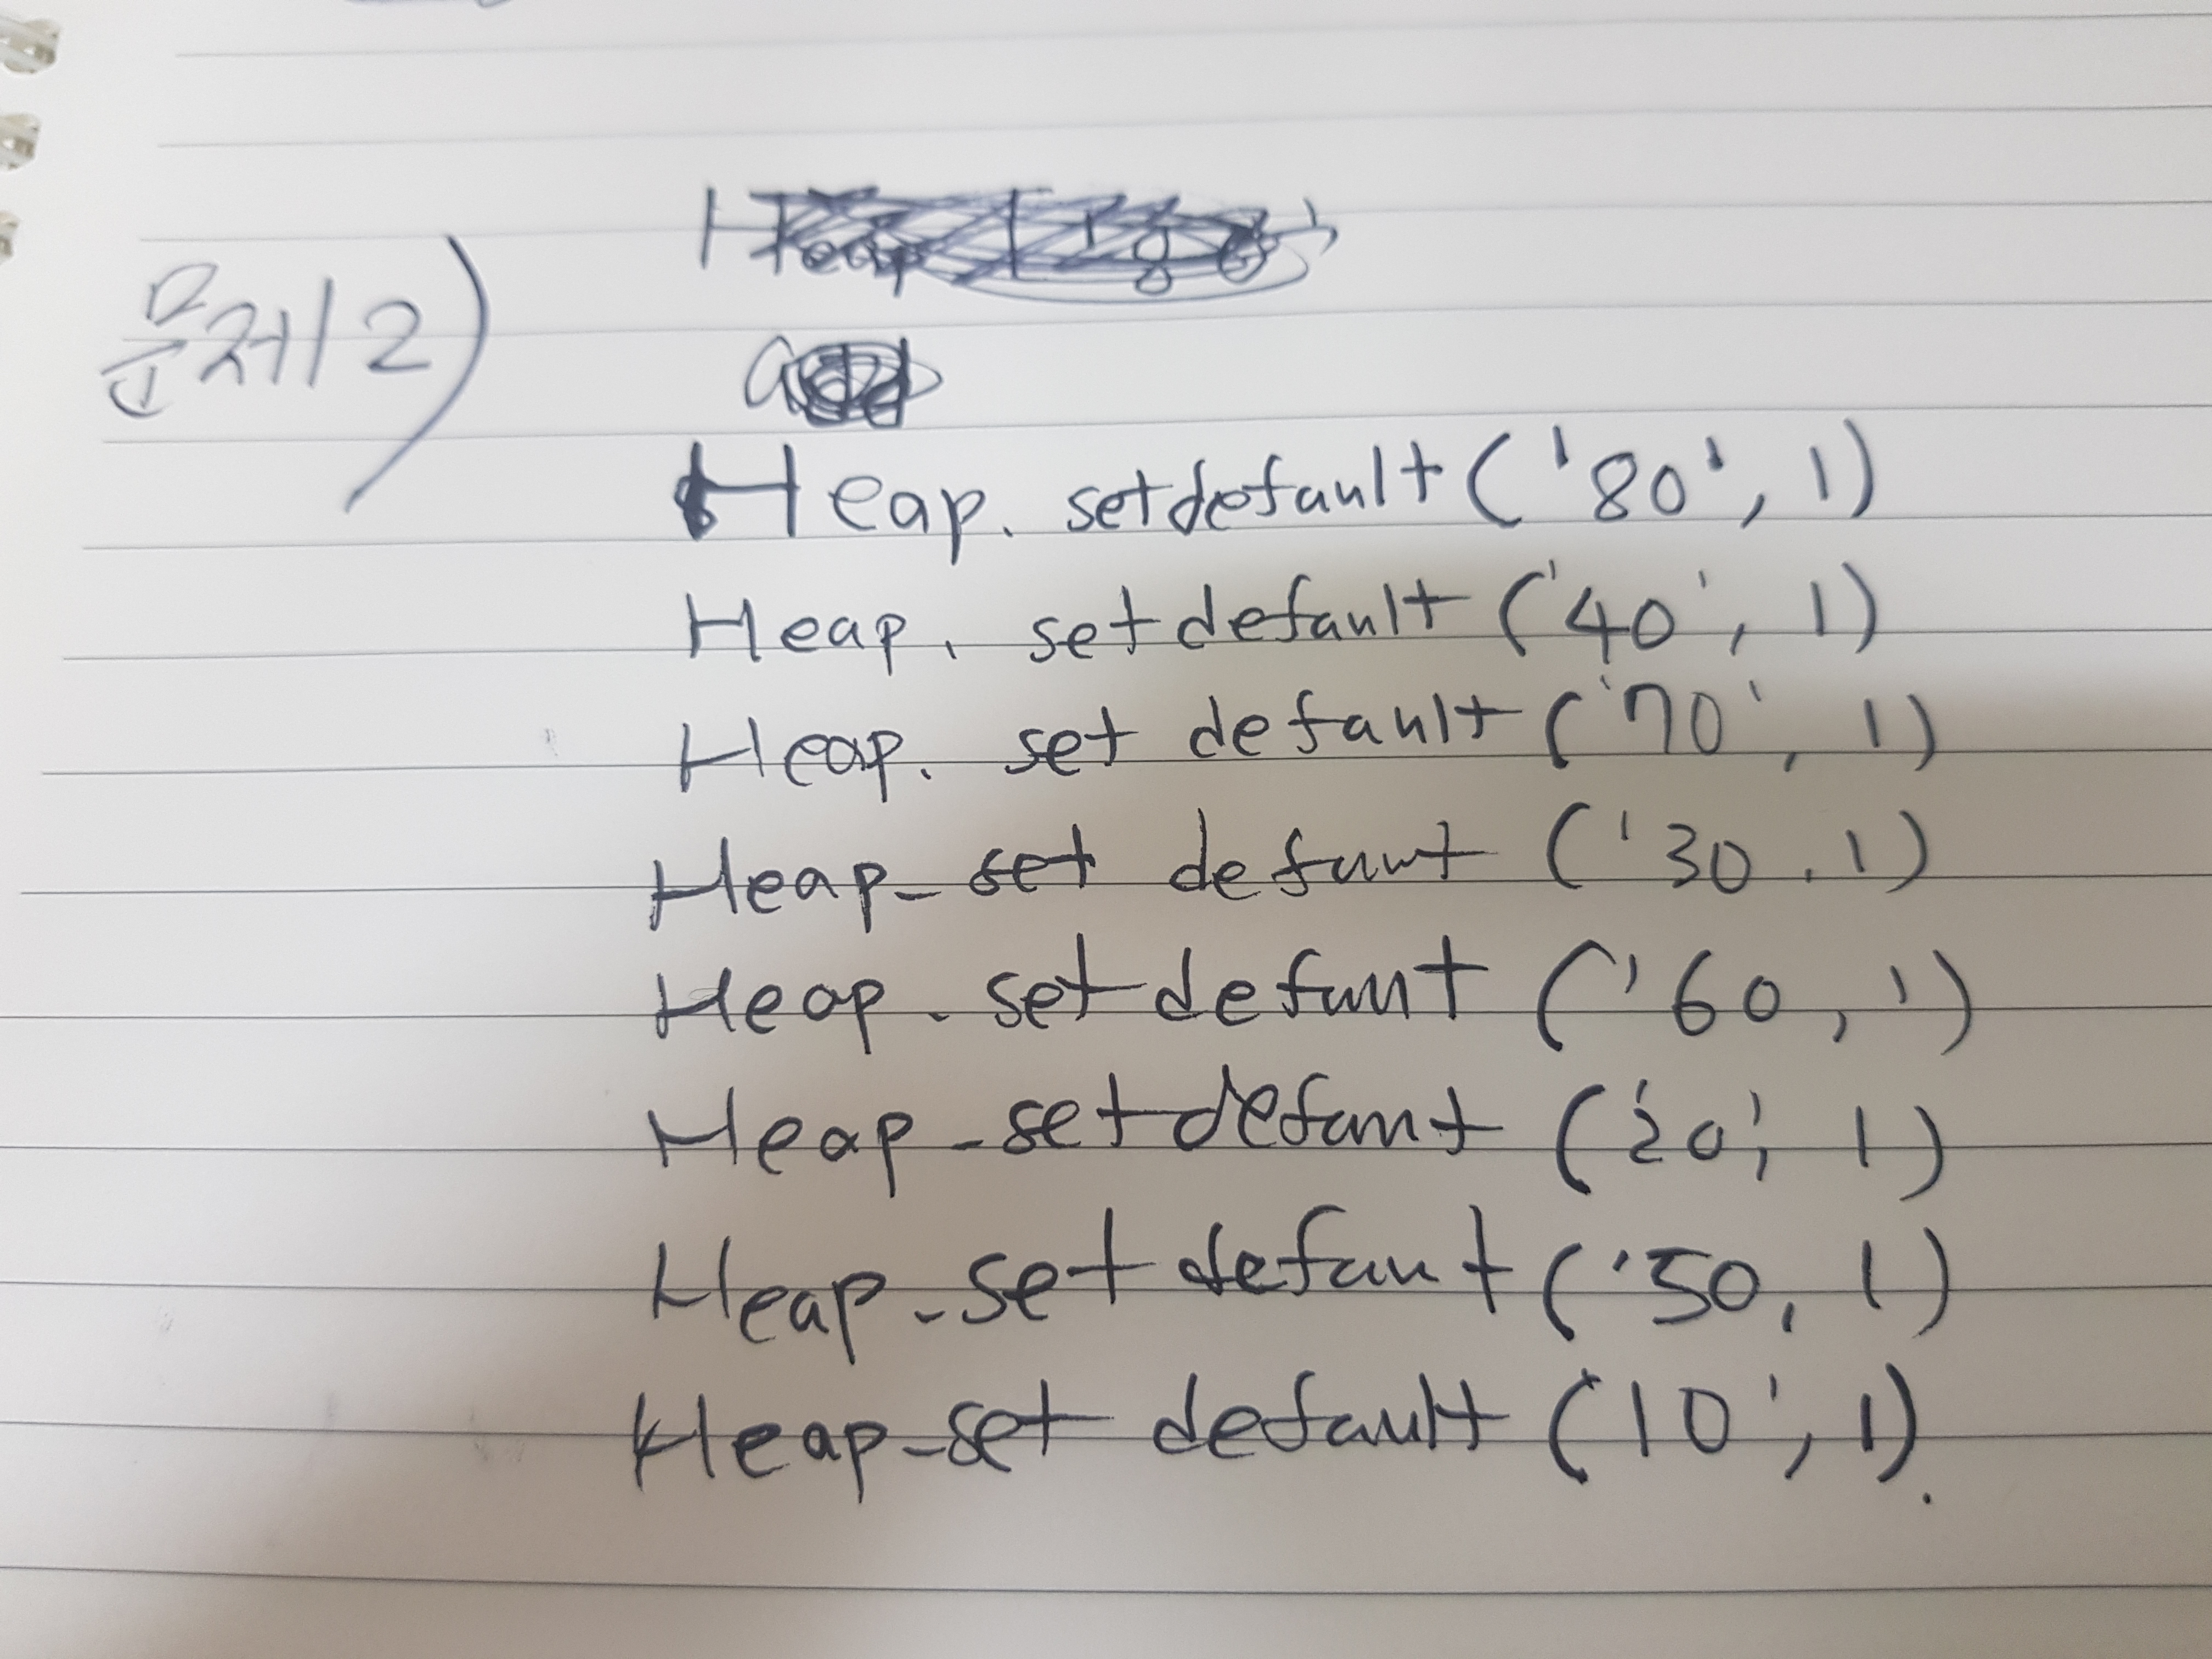 문제 2)
Heap. setdefault ('80', 1)
Heap. setdefault ('40', 1)
Heap. setdefault ('70', 1)
Heap. setdefault ('30, 1)
Heap. setdefault ('60, 1)
Heap. setdefault ('20', 1)
Heap. setdefault ('50, 1)
Heap. setdefault ('10', 1).